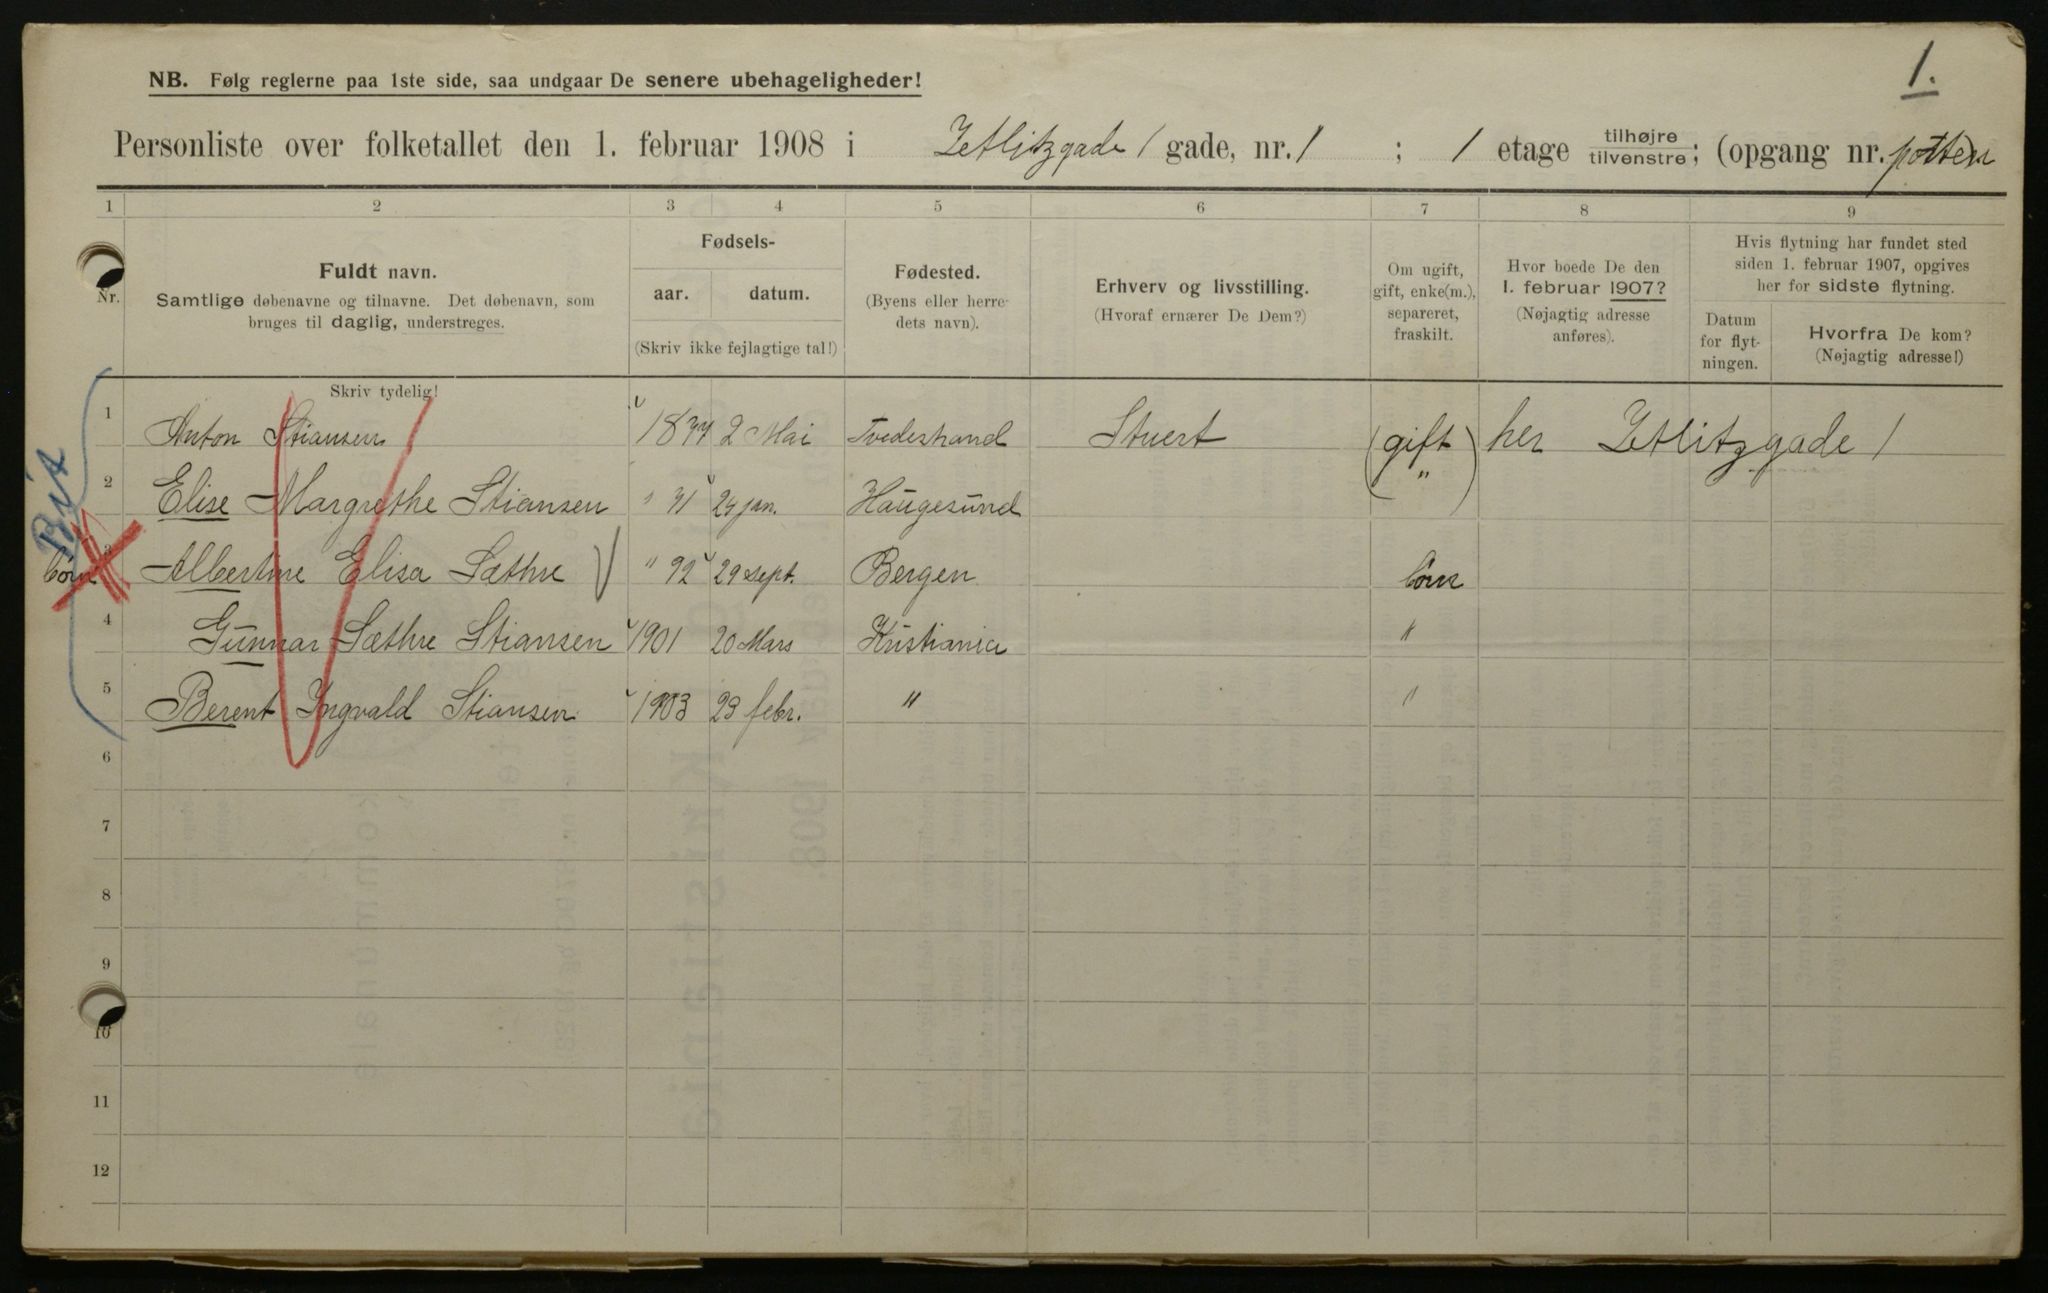 1.
NB. Følg reglerne paa 1ste side, saa undgaar De senere ubehageligheder!
Personliste over folketallet den 1. februar 1908 i Zetlitzgade 1 gade, nr. 1 ; 1 etage tilhøjre tilvenstre; (opgang nr. porten)
1 2 3 4 5 6 7 8 9
Nr.
Fuldt navn.
Samtlige døbenavne og tilnavne. Det døbenavn, som
bruges til daglig, understreges.
Skriv tydelig!
Fødsels-
aar. datum.
(Skriv ikke fejlagtige tal!)
Fødested.
(Byens eller herre-
dets navn).
Erhverv og livsstilling.
(Hvoraf ernærer De Dem?)
Om ugift,
gift, enke(m.),
separeret,
fraskilt.
Hvor boede De den
1. februar 1907?
(Nøjagtig adresse
anføres).
Hvis flytning har fundet sted
siden 1. februar 1907, opgives
her for sidste flytning.
Datum
for flyt-
ningen.
Hvorfra De kom?
(Nøjagtig adresse!)
1 Anton Stiansen 2 Mai Tvedestrand Stuert (gift her Zetlitzgade 1
2 Elise Margrethe Stiansen " 71 24 jan. Haugesund ")
børn 3 Albertine Elisa Sæthre " 92 29 sept. Bergen børn
4 Gunnar Sæthre Stiansen 1901 20 Mars Kristiania "
5 Berent Ingvald Stiansen 1903 23 febr. " "
6
7
8
9
10
11
12